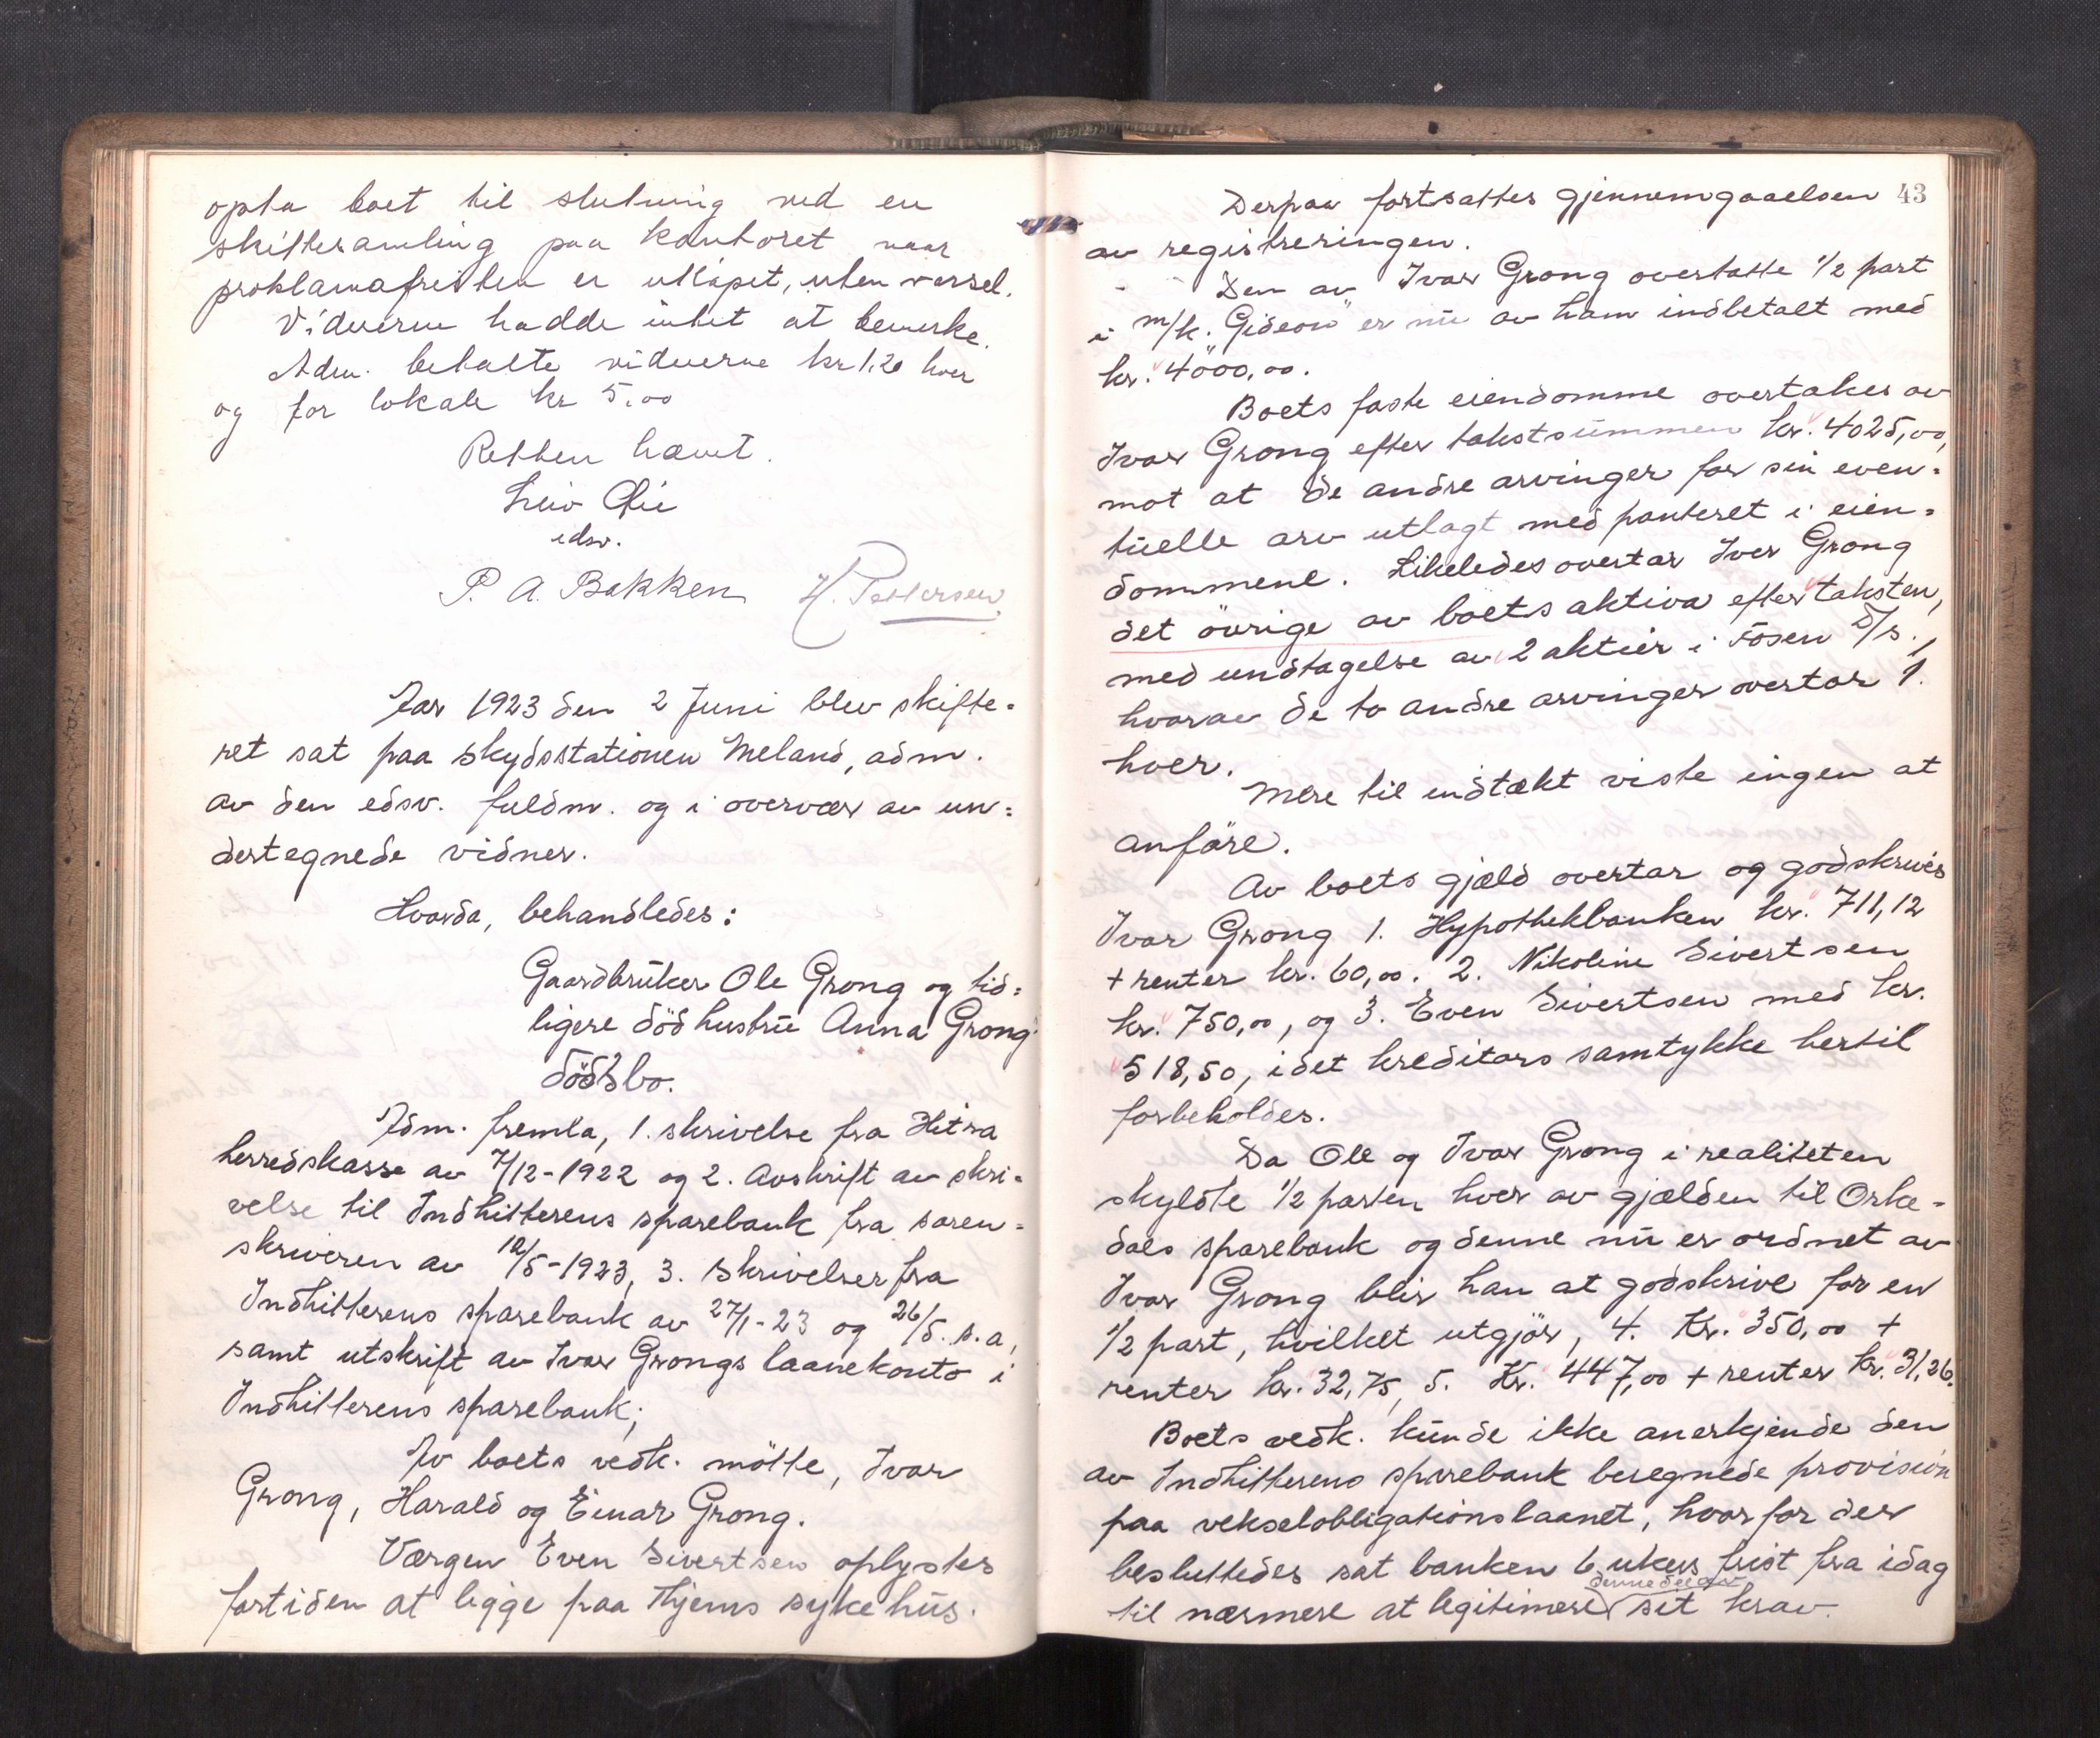 opta boet til slutning ved en
skiftesamling paa kontoret naar
proklamafristen er utløpet, uten varsel.
Vidnerne hadde intet at bemerke.
Adm. betalte vidnerne kr 1,20 hver
og for lokale kr 5,00
Retten hævet.
edsv.
P. A. Bakken H. Pettersen
Aar 1923 den 2 Juni blev skifte=
ret sat paa skydsstationen Meland, adm.
av den edsv. fuldm. og i overvær av un=
dertegnede vidner.
Hvorda, behandledes:
Gaardbruker Ole Grong og tid=
ligere død hustru Anna Grong
dødsbo.
Adm. fremla, 1. skrivelse fra Hitra
herredskasse av 7/12-1922 og 2. Avskrift av skri=
velse til Indhitterens sparebank fra soren=
skriveren av 12/5-1923, 3. skrivelser fra
Indhitterens sparebank av 27/1-23 og 26/5. s.a,
samt utskrift av Ivar Grongs laanekonto i
Indhitterens sparebank;
Av boets vedk. mötte, Ivar
Grong, Harald og Einar Grong.
Værgen Even Sivertsen oplystes
fortiden at ligge paa Hjems sykehus.
43
Derpaa fortsattes gjennemgaaelsen
av registreringen.
Den av Ivar Grong overtatte 1/2 part
i m/k. "Gideon" er nu av ham indbetalt med
kr. 4000,00.
Boets faste eiendomme overtakes av
Ivar Grong efter takstsummen kr. 4025,00,
mot at de andre arvinger for sin even=
tuelle arv utlagt med panteret i eien=
dommene. Likeledes overtar Iver Grong
det övrige av boets aktiva efter taksten,
med undtagelse av 2 aktier i Fosen D/s.,
hvorav de to andre arvinger overtar 1.
hver.
Mere til indtækt viste ingen at
anföre.
Av boets gjæld overtar og godskrives
Ivar Grong 1. Hypothekbanken kr. 711,12
+ renter kr. 60,00. 2. Nikoline Sivertsen
kr. 750,00, og 3. Even Sivertsen med kr.
518,50, idet kreditors samtykke hertil
forbeholdes.
Da Ole og Ivar Grong i realiteten
skyldte 1/2 parten hver av gjælden til Orke-
dals sparebank og denne nu er ordnet av
Ivar Grong blir han at godskrive for en
1/2 part, hvilket utgjör, 4. Kr. 350,00 +
renter kr. 32,75, 5. Kr. 447,00 + renter kr. 31,26.
Boets vedk. kunde ikke anerkjende den
av Indhitterens sparebank beregnede provision
paa vekselobligationslaanet, hvorfor der
besluttedes sat banken 6 ukers frist fra idag
denne del av
til nærmere at legitimere sit krav.